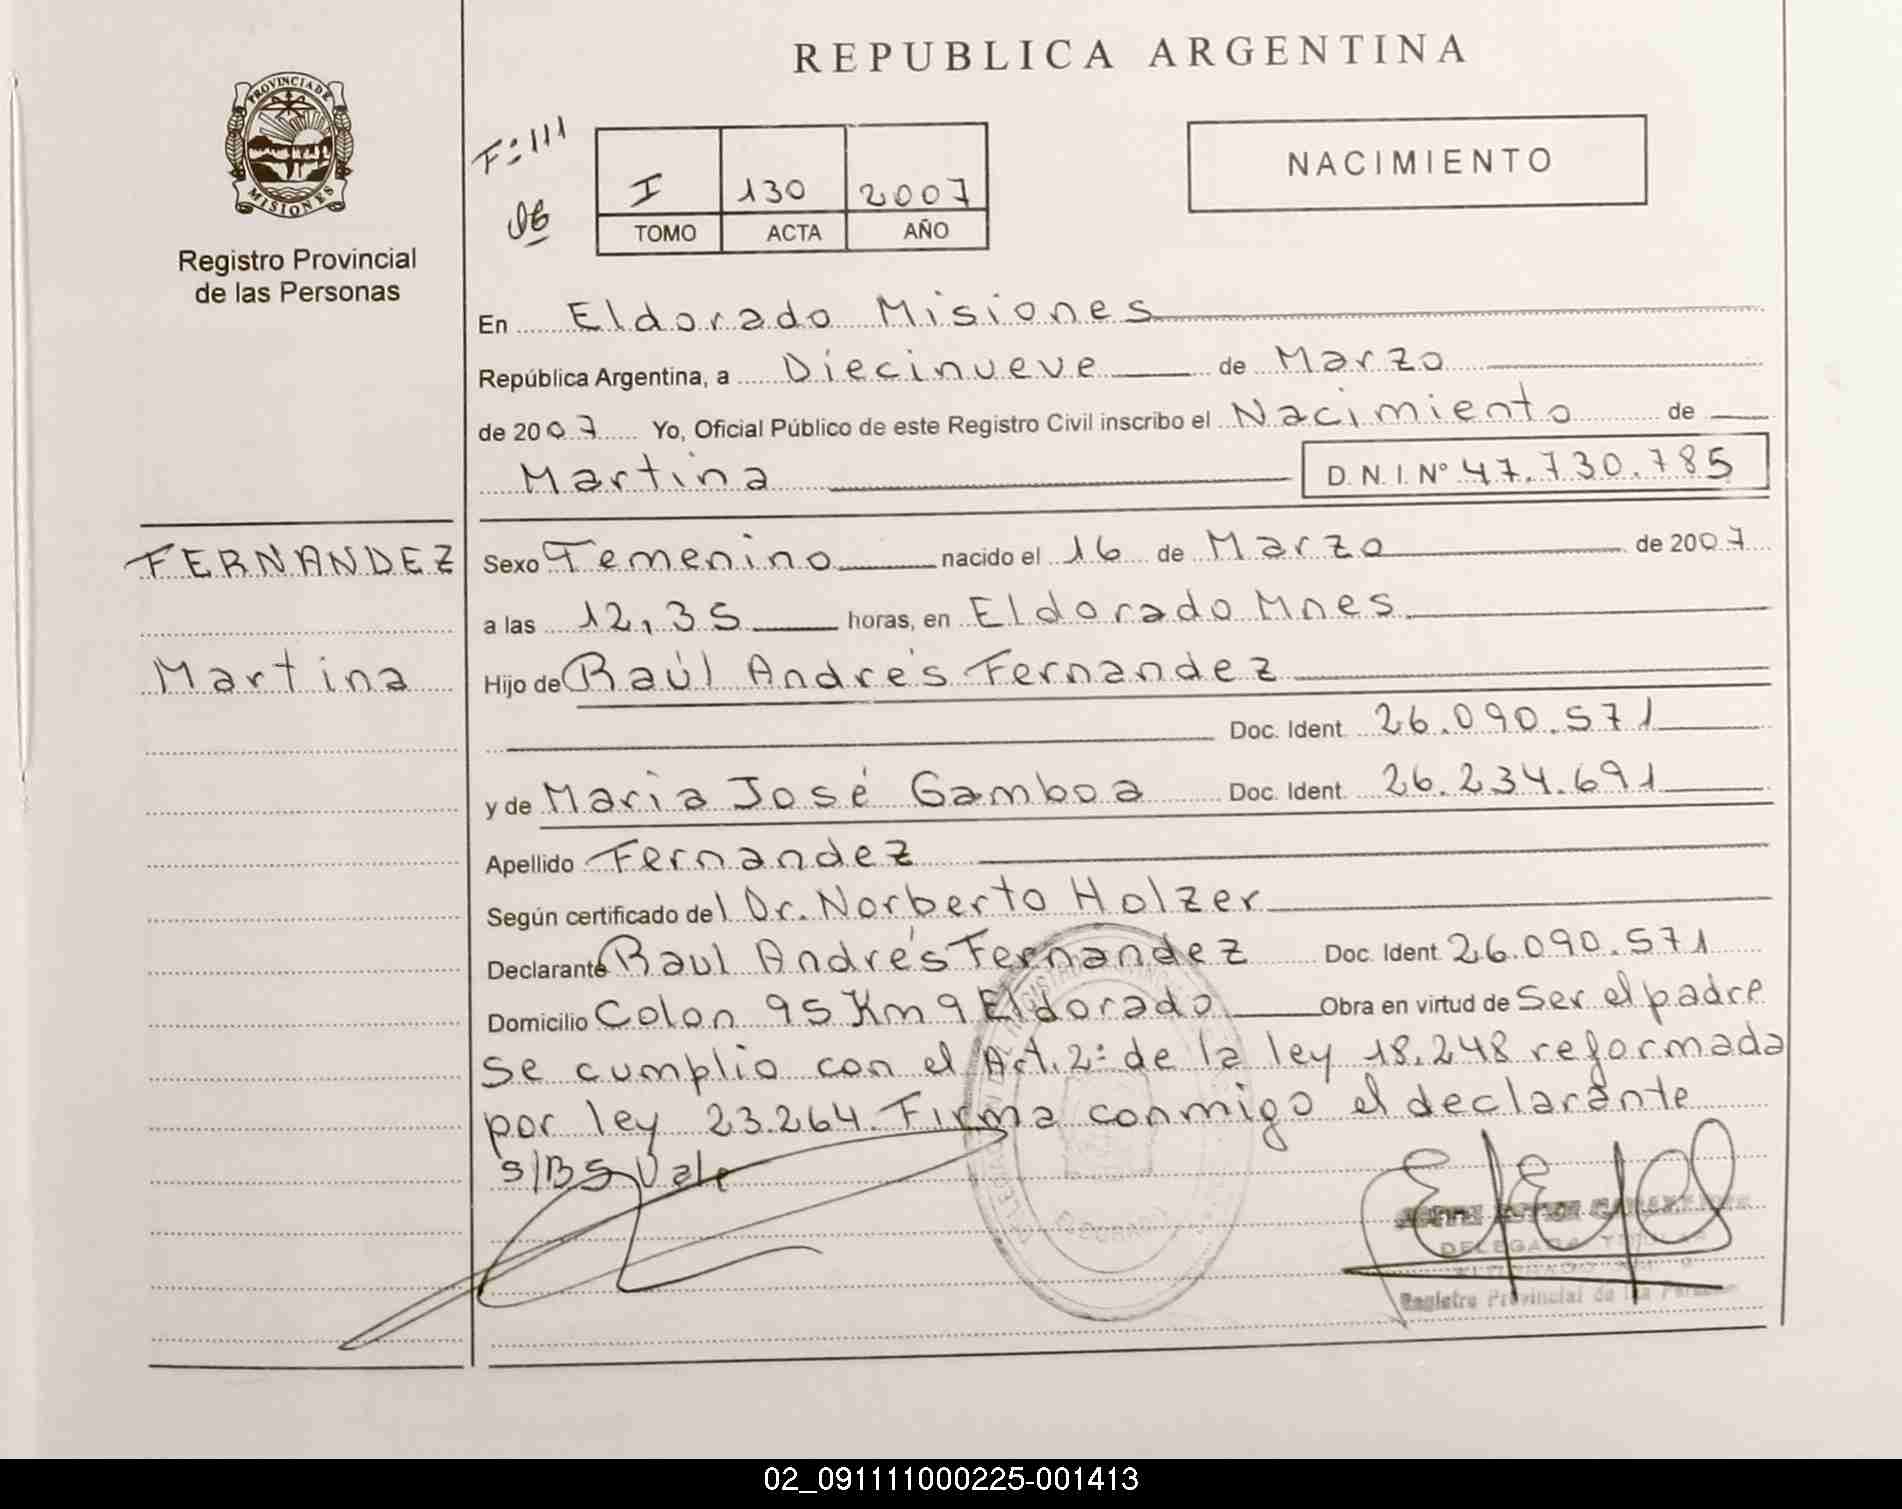 REPUBLICA ARGENTINA
PROVINCIA DE
MISIONES
Registro Provincial
de las Personas
F: 111
I 130 2007
TOMO ACTA AÑO
NACIMIENTO
En Eldorado Misiones
República Argentina, a Diecinueve de Marzo
de 2007 Yo, Oficial Público de este Registro Civil inscribo el Nacimiento de
Martina D.N.I.Nº 47.730.785
FERNANDEZ
Martina
Sexo Femenino nacido el 16 de Marzo de 2007
a las 12,35 horas, en Eldorado Mnes
Hijo de Raúl Andrés Fernandez
Doc. Ident. 26.090.571
y de Maria José Gamboa Doc. Ident. 26.234.691
Apellido Fernandez
Según certificado del Dr. Norberto Holzer
Declarante Raul Andrés Fernandez Doc. Ident. 26.090.571
Domicilio Colon 95 Km 9 Eldorado Obra en virtud de Ser el padre
se cumplio con el Art. 2: de la ley 18.248 reformada
por ley 23.264. Firma conmigo el declarante
S/BS Vale
DELEGADA
ELDORADO KM 9
Registro Provincial de las
02_091111000225-001413